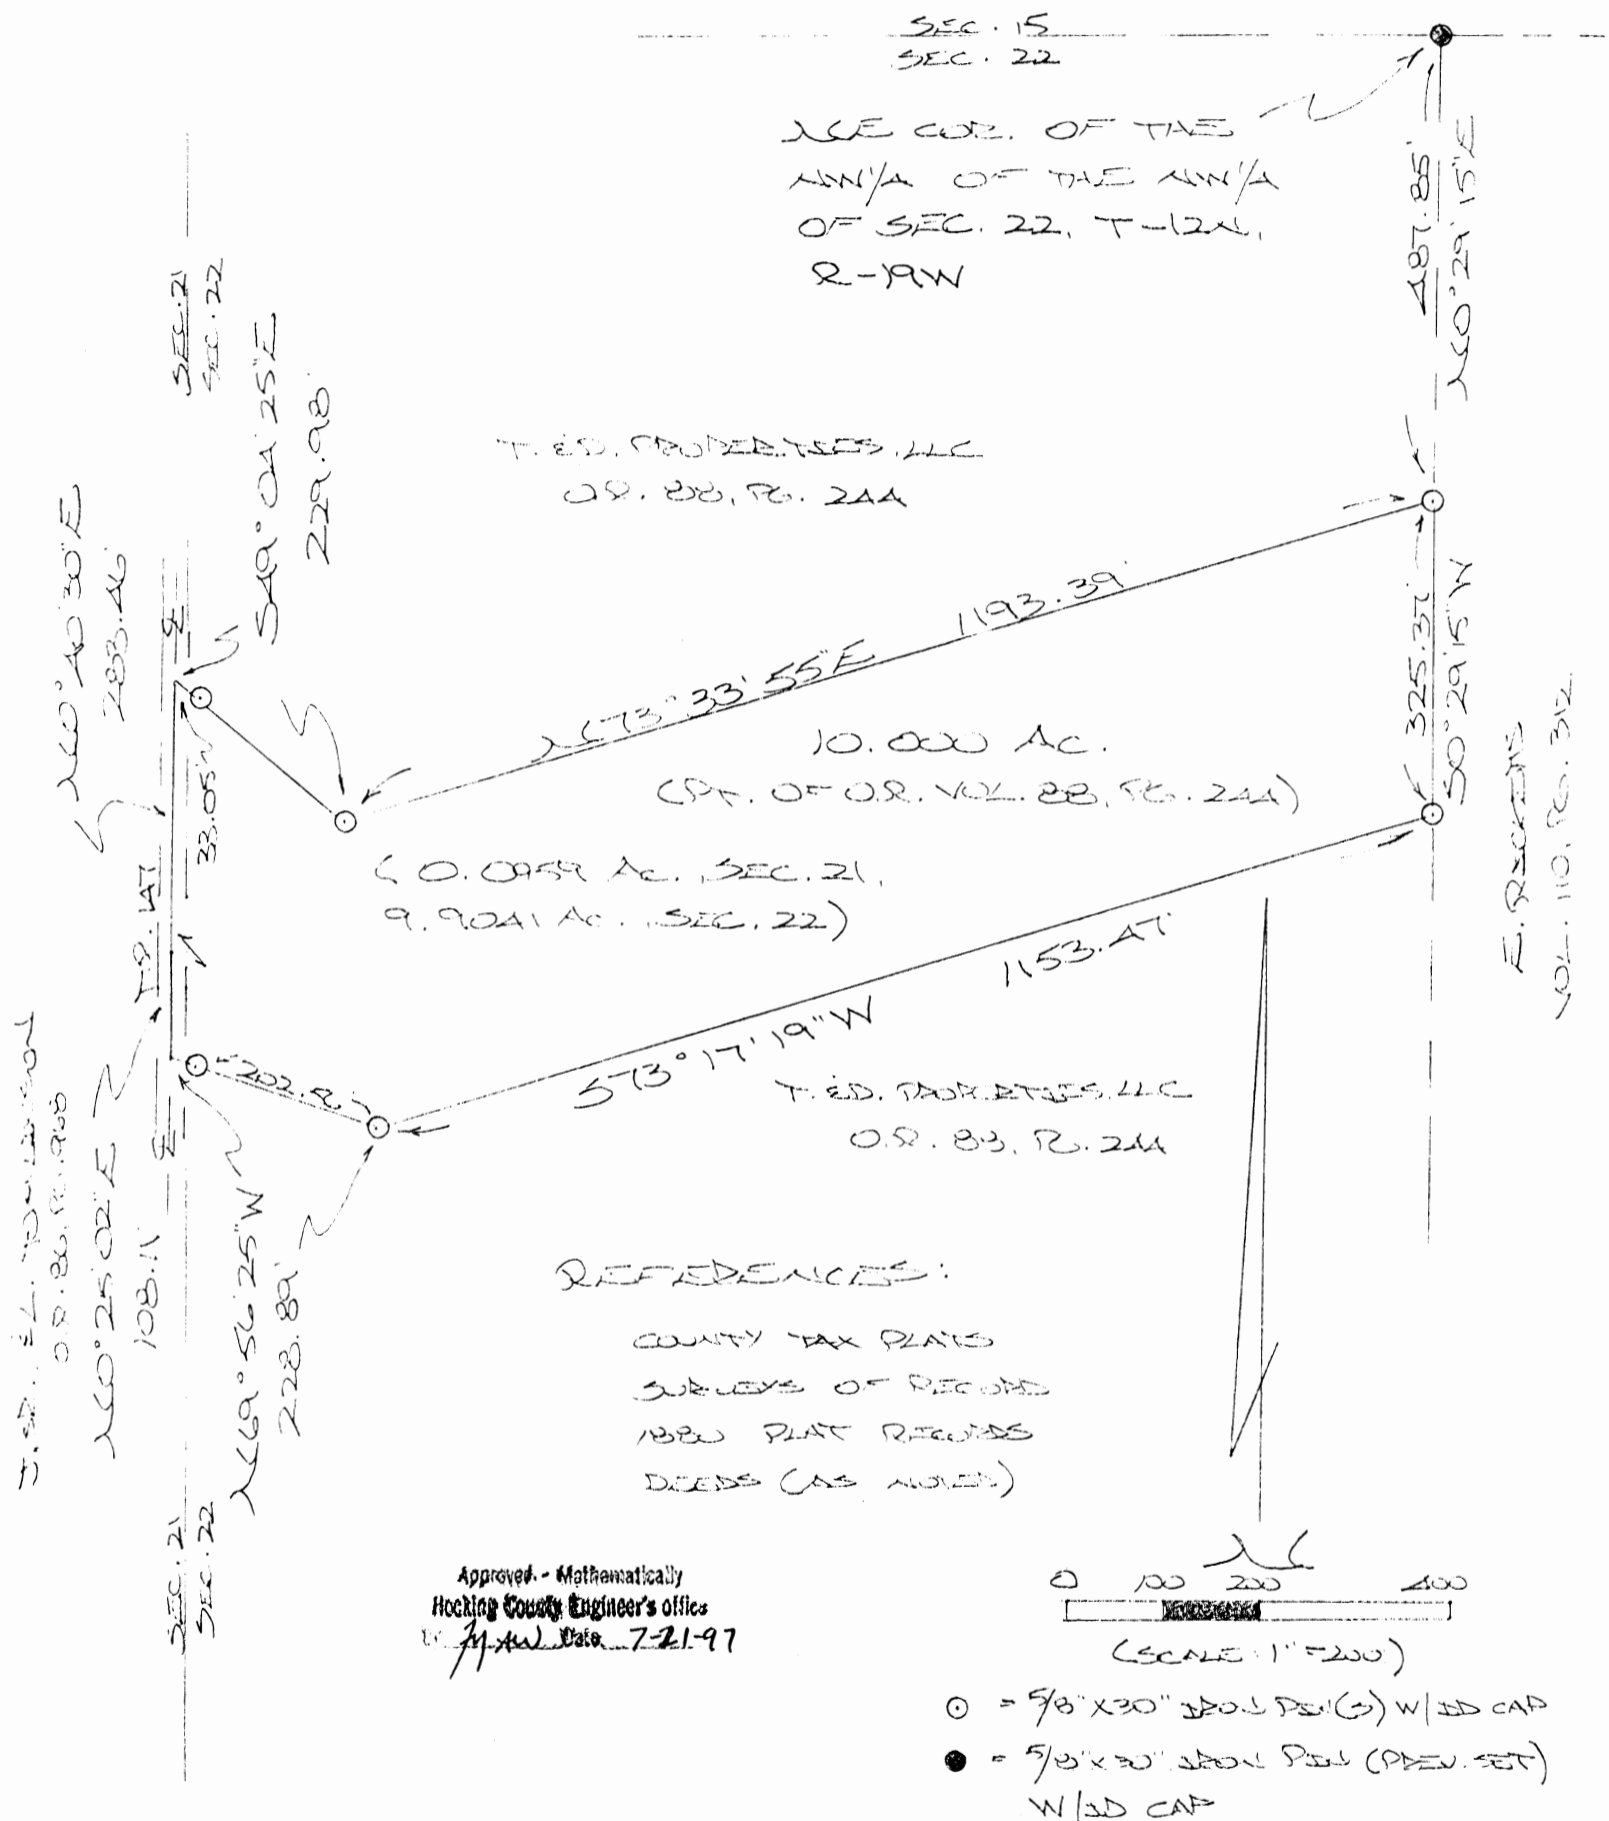 SEC. 15
SEC. 22
NE COR. OF THE
NW/4 OF THE NW/4
OF SEC. 22, T-12N,
R-19W
487.85'
N0°29'15"E
SEC. 21
SEC. 22
S49°04'25"E
229.98'
T. & D. PROPERTIES, LLC
O.R. 88, PG. 244
N0°40'30"E
283.46'
℄
1193.39'
N73°33'55"E
33.05'
10.000 AC.
(PT. OF O.R. VOL. 88, PG. 244)
325.37'
S0°29'15"W
E. RICKETTS
VOL. 110, PG. 312
(0.0959 AC. SEC. 21,
9.9041 AC. SEC. 22)
T.R. 147
1153.47'
S73°17'19"W
202.
T. & D. PROPERTIES, LLC
O.R. 88, PG. 244
O.R. 86, PG. 968
N0°25'02"E
108.11'
℄
N69°56'25"W
228.89'
REFERENCES:
COUNTY TAX PLATS
SURVEYS OF RECORD
1880 PLAT RECORDS
DEEDS (AS NOTED)
SEC. 21
SEC. 22
Approved - Mathematically
Hocking County Engineer's office
Date 7-21-97
N
0 100 200 400
(SCALE: 1"=200')
= 5/8"X30" IRON PIN(S) W/ID CAP
= 5/8"X30" IRON PIN (PREV. SET)
W/ID CAP